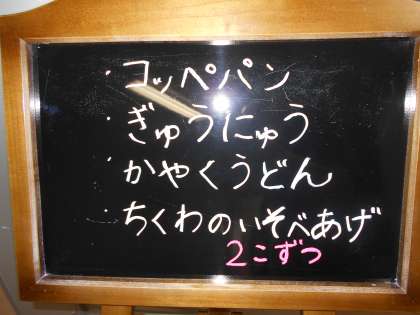 ・コッペパン
・ぎゅうにゅう
・かやくうどん
・ちくわのいそべあげ
2こずつ